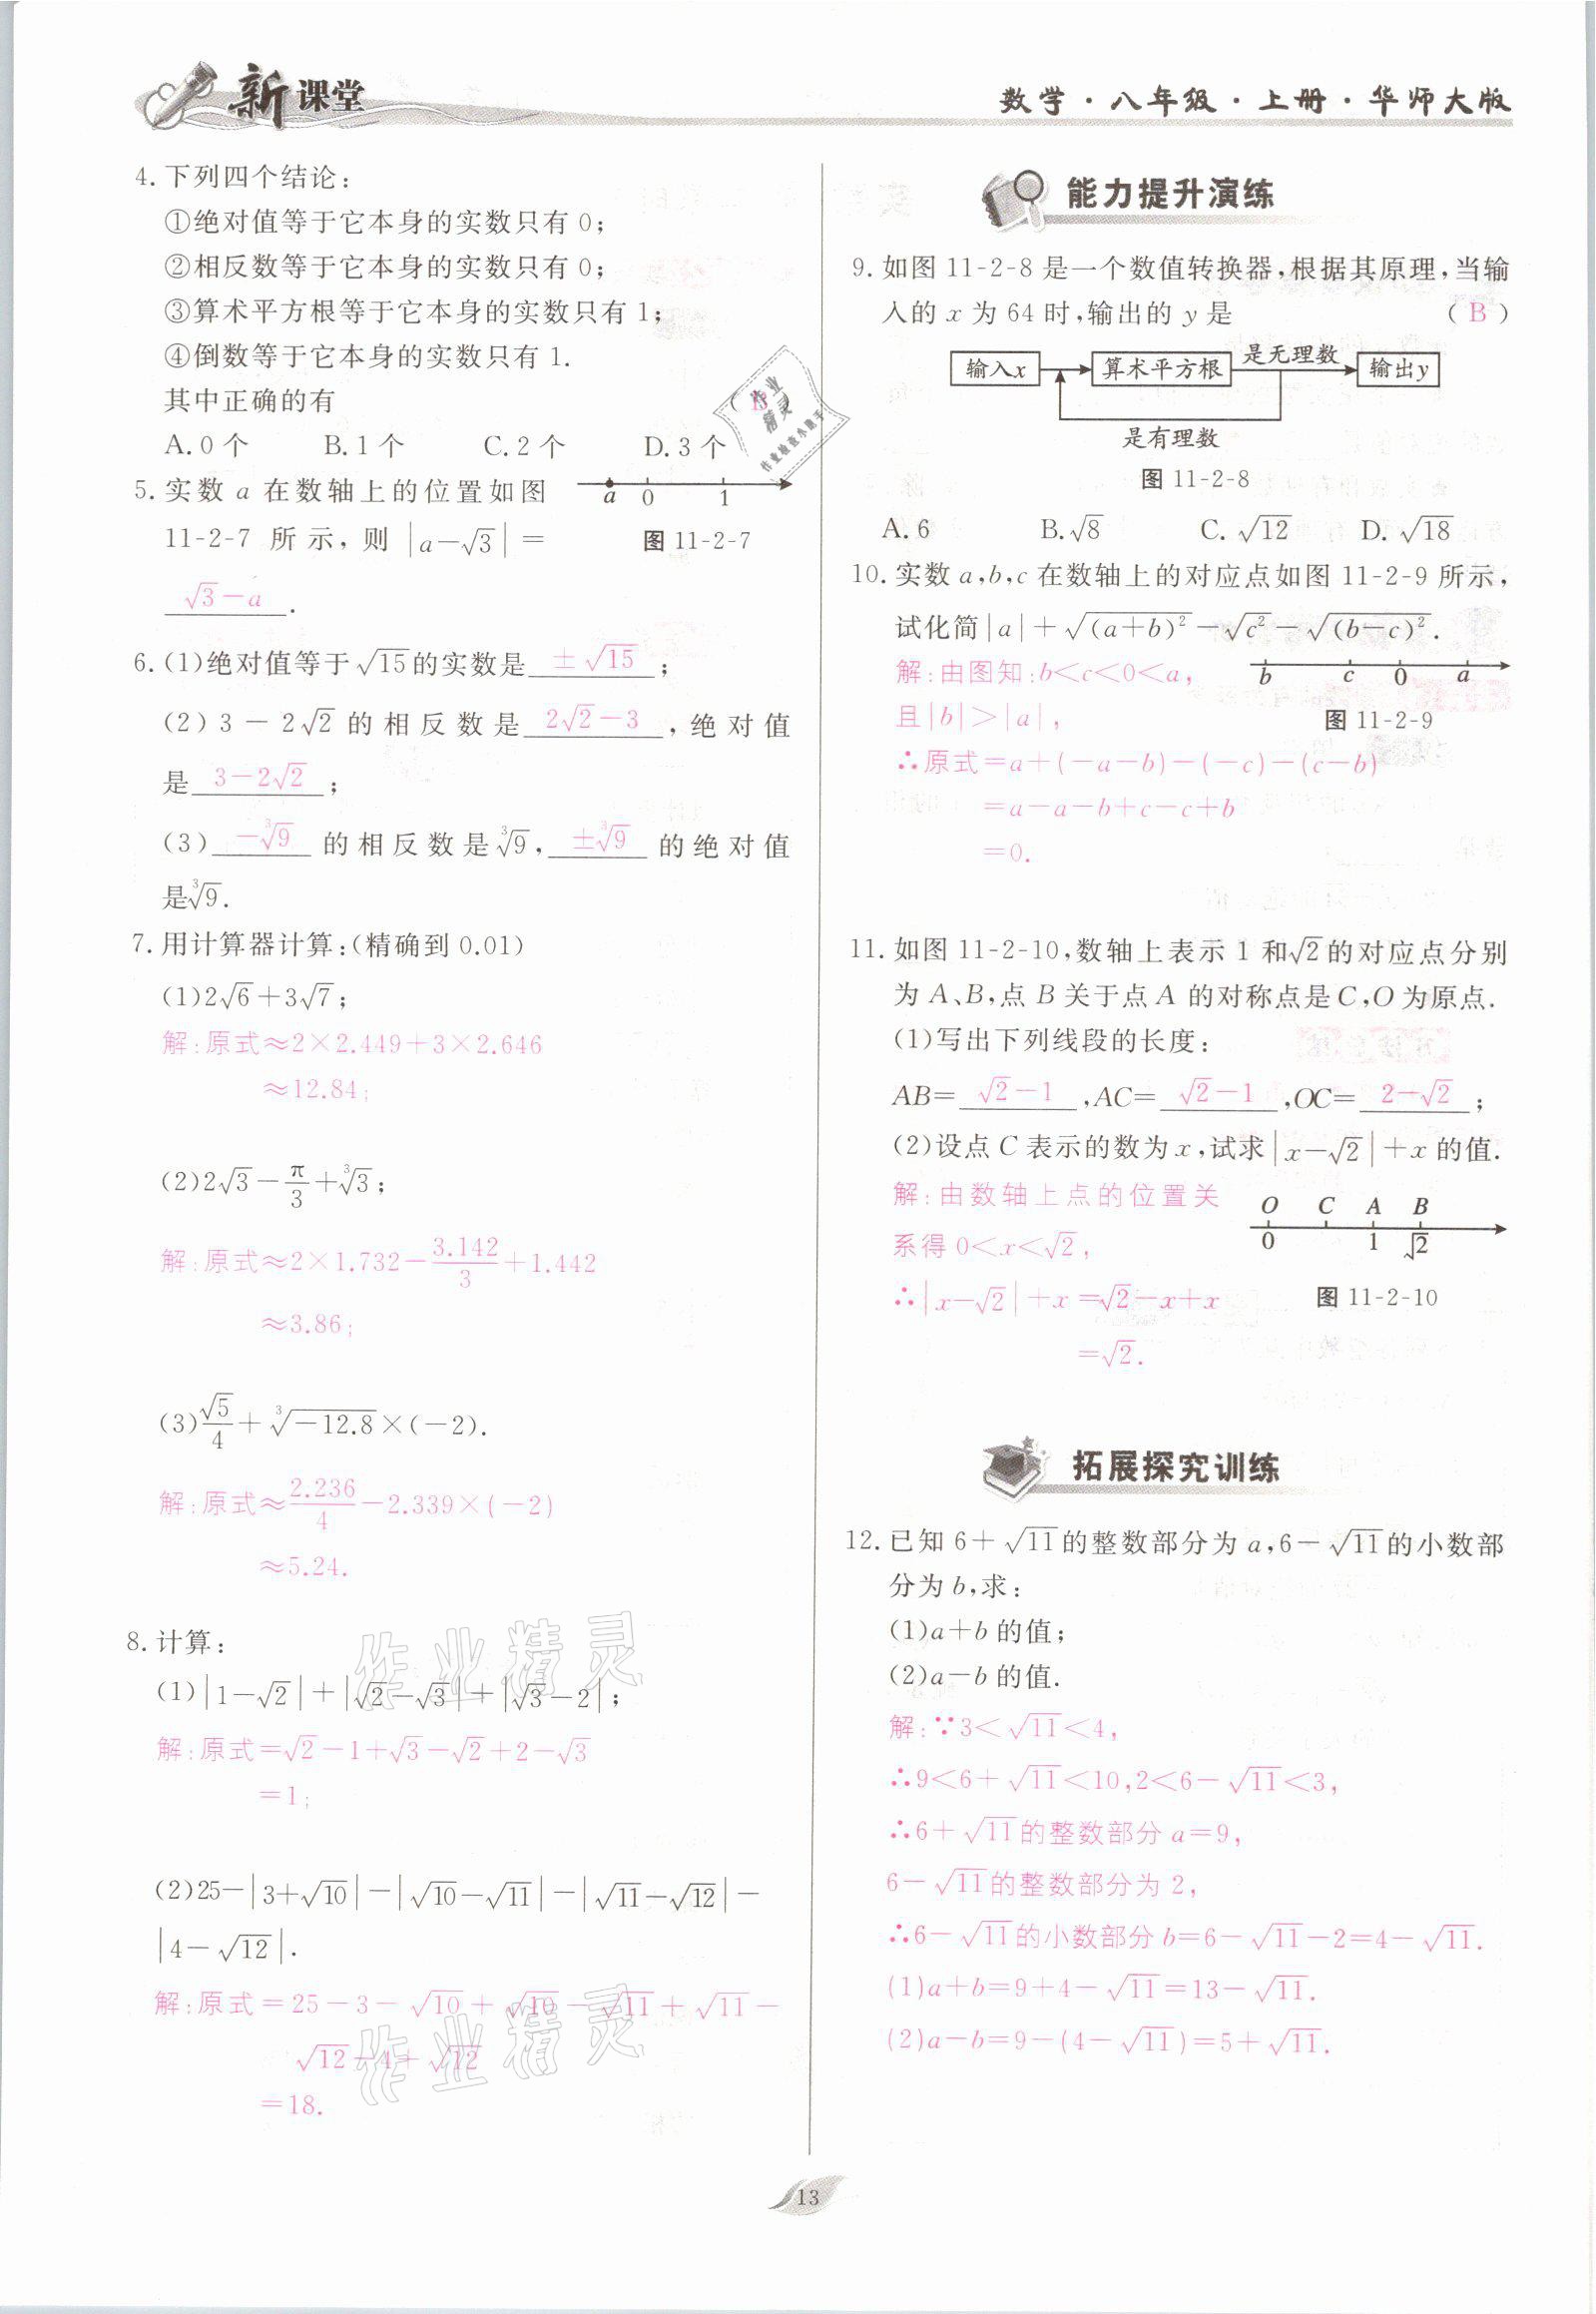 新课堂
数学·八年级·上册·华师大版
4.下列四个结论:
①绝对值等于它本身的实数只有 0;
②相反数等于它本身的实数只有 0;
③算术平方根等于它本身的实数只有 1;
④倒数等于它本身的实数只有 1.
其中正确的有 ( B )
A.0 个 B.1 个 C.2 个 D.3 个
5.实数 a 在数轴上的位置如图
11-2-7 所示,则 |a-√3|=
√3-a.
a 0 1
图 11-2-7
6.(1)绝对值等于√15的实数是 ±√15 ;
(2)3-2√2 的相反数是 2√2-3 ,绝对值
是 3-2√2 ;
(3) -∛9 的相反数是∛9, ±∛9 的绝对值
是∛9.
7.用计算器计算:(精确到 0.01)
(1)2√6+3√7;
解:原式≈2×2.449+3×2.646
≈12.84;
(2)2√3-π/3+∛3;
解:原式≈2×1.732-3.142/3+1.442
≈3.86;
(3)√5/4+∛-12.8×(-2).
解:原式≈2.236/4-2.339×(-2)
≈5.24.
8.计算:
(1)|1-√2|+|√2-√3|+|√3-2|;
解:原式=√2-1+√3-√2+2-√3
=1;
(2)25-|3+√10|-|√10-√11|-|√11-√12|-
|4-√12|.
解:原式=25-3-√10+√10-√11+√11-
√12-4+√12
=18.
能力提升演练
9.如图 11-2-8 是一个数值转换器,根据其原理,当输
入的 x 为 64 时,输出的 y 是 ( B )
输入x 算术平方根 是无理数 输出y
是有理数
图 11-2-8
A.6 B.√8 C.√12 D.√18
10.实数 a,b,c 在数轴上的对应点如图 11-2-9 所示,
试化简|a|+√(a+b)²-√c²-√(b-c)².
解:由图知:b<c<0<a,
且|b|>|a|,
b c 0 a
图 11-2-9
∴原式=a+(-a-b)-(-c)-(c-b)
=a-a-b+c-c+b
=0.
11.如图 11-2-10,数轴上表示 1 和√2的对应点分别
为 A、B,点 B 关于点 A 的对称点是 C,O 为原点.
(1)写出下列线段的长度:
AB= √2-1 ,AC= √2-1 ,OC= 2-√2 ;
(2)设点 C 表示的数为 x,试求|x-√2|+x 的值.
解:由数轴上点的位置关
系得 0<x<√2,
∴|x-√2|+x=√2-x+x
=√2.
O C A B
0 1 √2
图 11-2-10
拓展探究训练
12.已知 6+√11的整数部分为 a,6-√11的小数部
分为 b,求:
(1)a+b 的值;
(2)a-b 的值.
解:∵3<√11<4,
∴9<6+√11<10,2<6-√11<3,
∴6+√11的整数部分 a=9,
6-√11的整数部分为 2,
∴6-√11的小数部分 b=6-√11-2=4-√11.
(1)a+b=9+4-√11=13-√11.
(2)a-b=9-(4-√11)=5+√11.
作业精灵
作业精灵
作业精灵
13